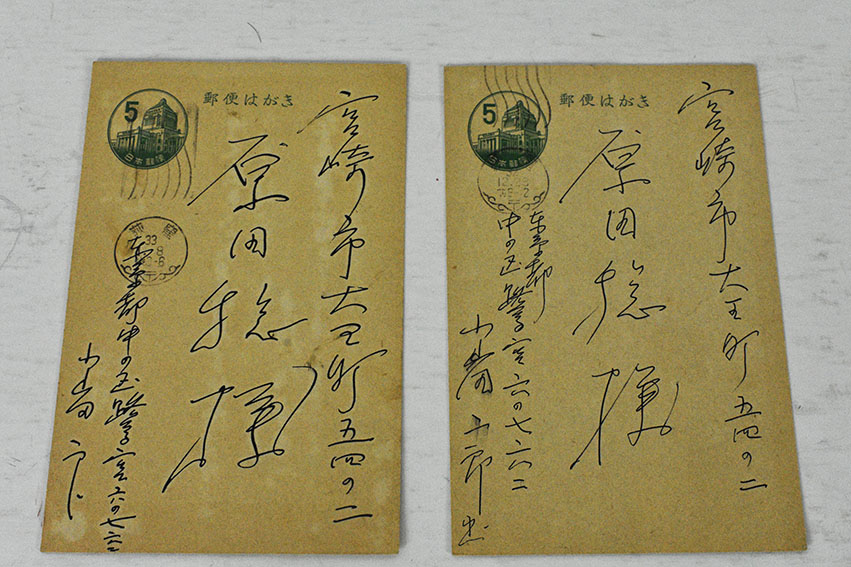 郵便はがき
5
日本郵便
宮崎市大王町五四の二
原田稔様
33
東京都中の区鷺宮六の七六二
郵便はがき
5
日本郵便
宮崎市大王町五四の二
原田稔様
東京都
中の区鷺宮六の七六二